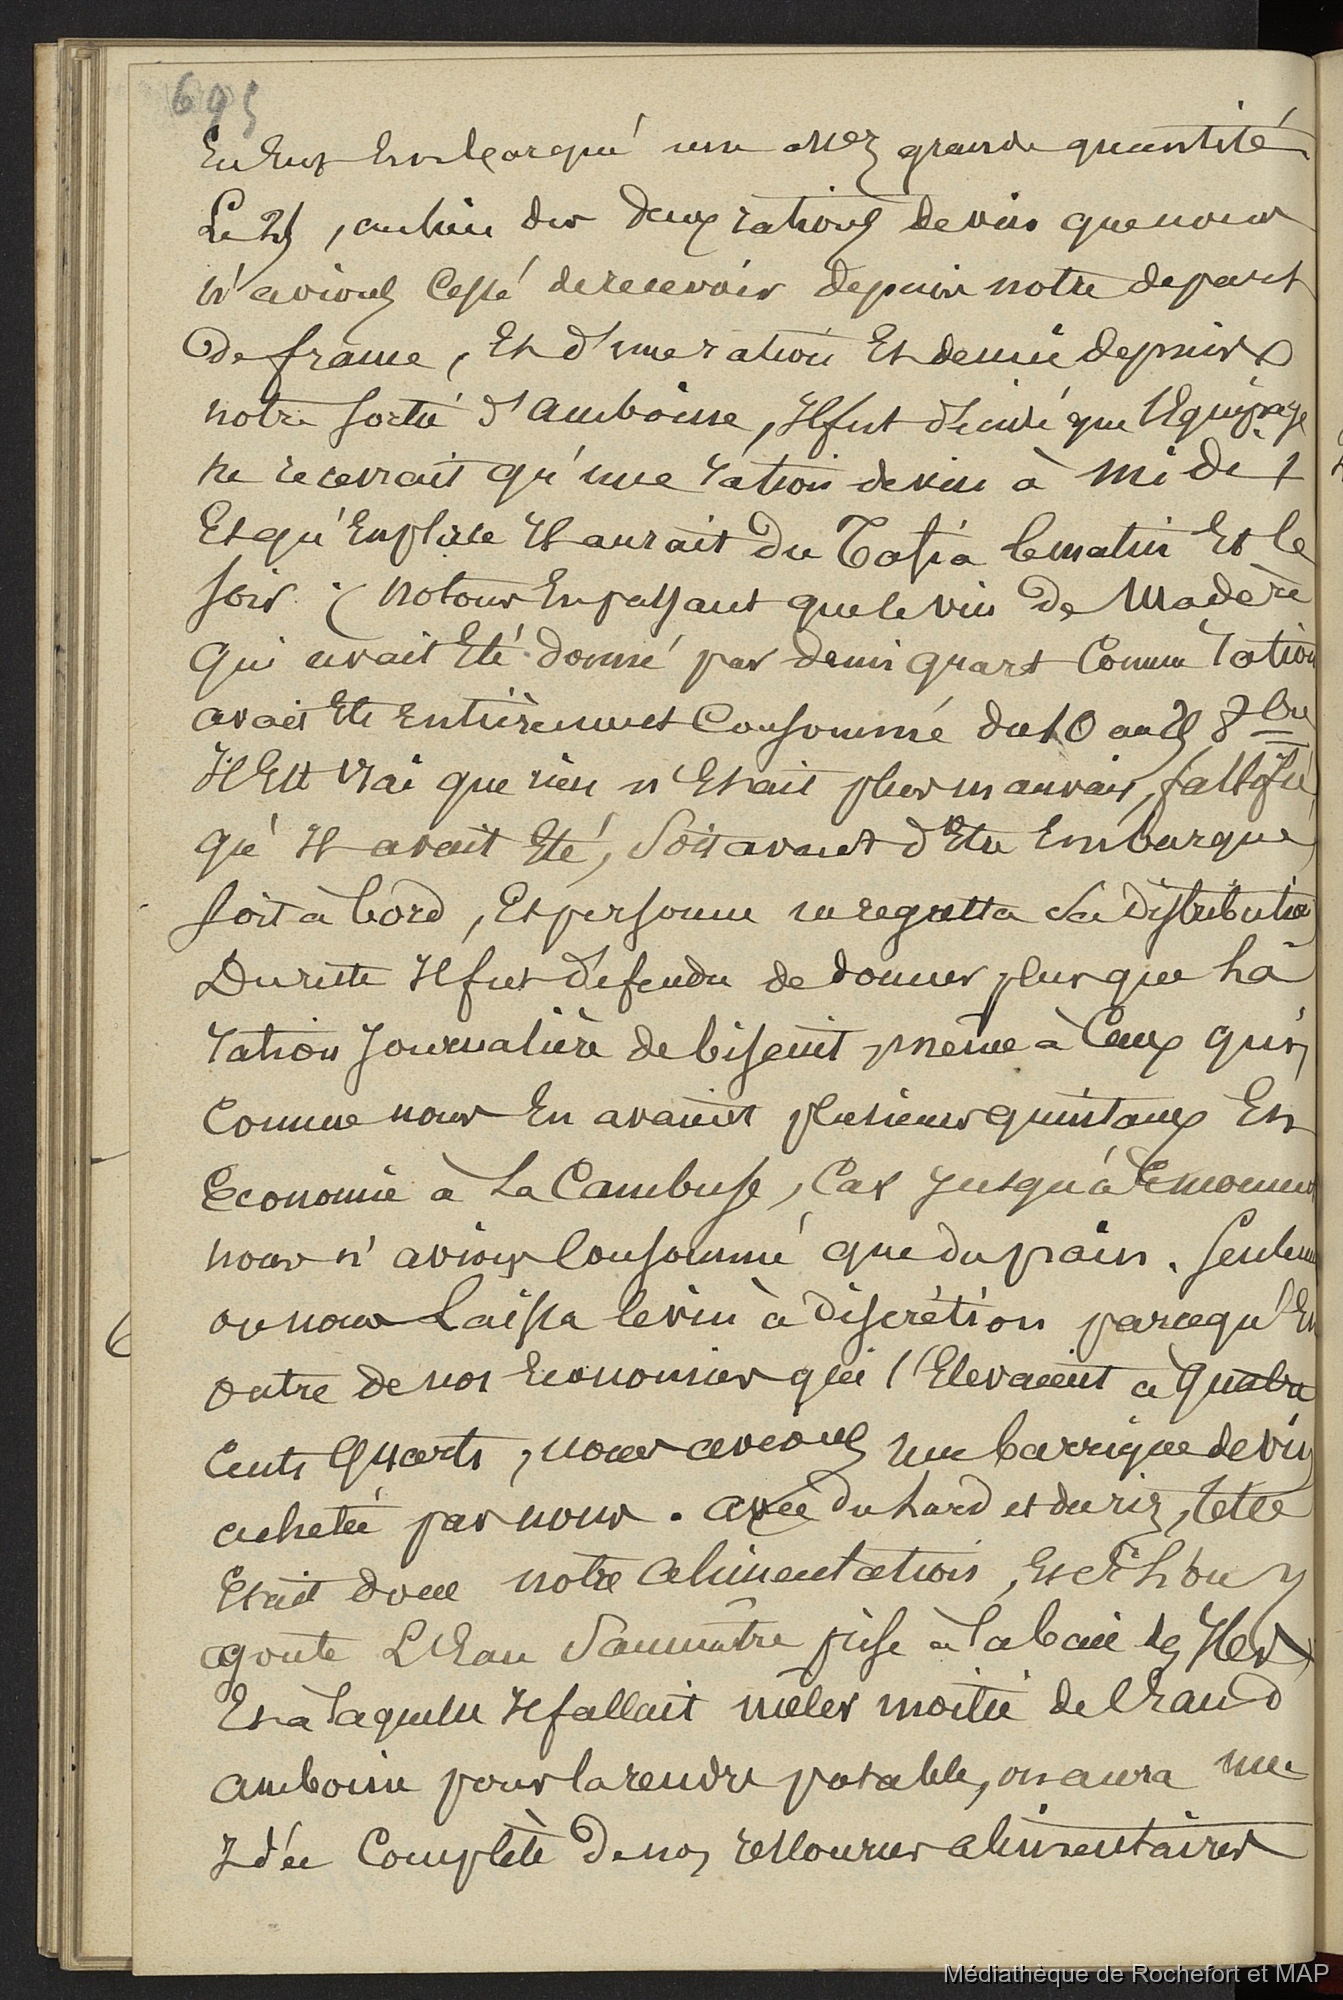 695
En eut embarqué une assez grande quantité
Le 25, au lieu des deux rations de vin que nous
n'avions cessé de recevoir depuis notre depart
De france, Et d'une ration Et demie depuis
notre sortie d'amboine, Il fut décidé que l'Equipage
ne recevrait qu'une ration de vin à midi
Et qu'En place Il aurait du Tafia le matin Et le
soir : ( notons En passant que le vin De Madère
qui avait Eté donné par demi quart Comme ration
avait Eté Entièrement Consommé du 10 au 25 8bre
Il Est vrai que rien n'Etait plus mauvais, falsifié
qu'Il avait Eté, Soit avant d'Etre Embarqué,
soit à bord, Et personne ne regretta Sa Distribution
Du reste Il fut défendu de donner plus que La
ration Journalière de biscuit, même à Ceux qui,
Comme nous En avaient plusieurs quintaux En
Economie à La Cambuse, Car Jusqu'à Ce moment
nous n'avions Consommé que du pain. Seulement
on nous Laissa le vin à Discrétion parcequ'En
outre de nos Economies qui s'Elevaient a quatre
Cents quarts, nous avions une barrique de vin
achetée par nous. avec du Lard et du riz, telle
Etait donc notre alimentation, Et si L'on y
ajoute L'Eau Saumâtre prise à la baie des Iles
Et à laquelle Il fallait mêler moitié de l'Eau D
amboine pour la rendre potable, on aura une
Idée Complète De nos ressources alimentaires
Médiathèque de Rochefort et MAP